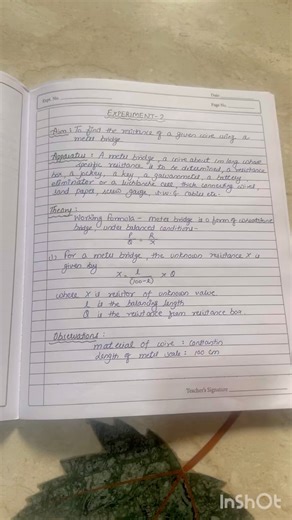 Expt. No.
Date
Page No.
EXPERIMENT-2
Aim : To find the resistance of a given wire using a
meter bridge
Apparatus : A meter bridge, a wire about 1m long whose
specific resistance is to be determined, a resistance
box, a jockey, a key, a galvanometer, a battery
eliminator or a cell, thick connecting wires,
sand paper, screw gauge, etc.
Theory :
Working formula - meter bridge is a form of wheatstone
bridge, under balanced conditions -
P/Q = R/X
For a meter bridge, the unknown resistance X is
given by
X = l/(100-l) × Q
where X is resistor of unknown value
l is the balancing length
Q is the resistance from resistance box
Observations :
material of wire : constantan
length of metal scale : 100 cm
Teacher's Signature
InShOt